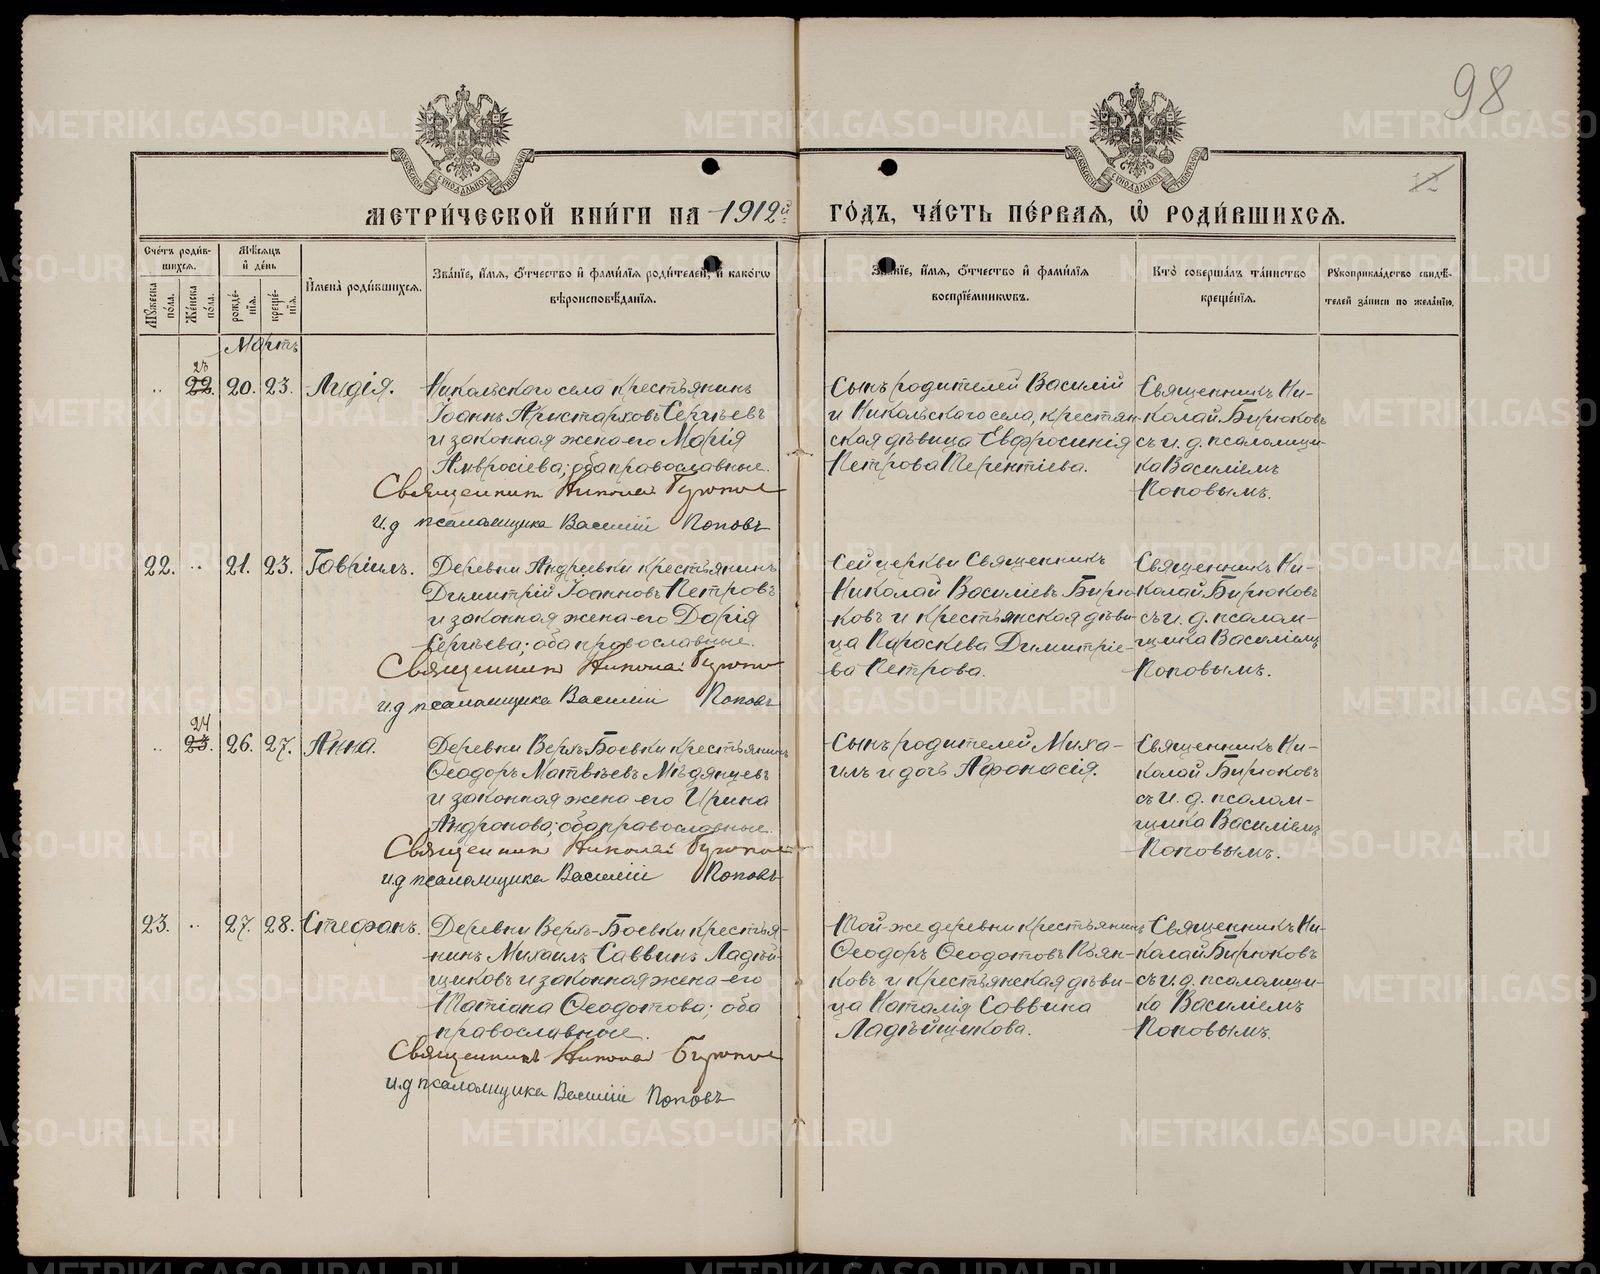 98
12
МЕТРИ́ЧЕСКОЙ КНИ́ГИ НА 1912й ГО́ДЪ, ЧА́СТЬ ПЕ́РВАѦ, Ѡ҆ РОДИ́ВШИХСѦ.
Сче́тъ роди́в-
шихсѧ.
Мѹ́жеска по́ла.
Же́нска по́ла.
Мѣ́сѧцъ
и҆ де́нь
рожде́-
нїѧ.
креще́-
нїѧ.
И҆мена̀ роди́вшихсѧ.
Зва́нїе, и҆́мѧ, ѻ҆́тчество и҆ фами́лїѧ роди́телей, и҆ како́гѡ
вѣроисповѣ́данїѧ.
Зва́нїе, и҆́мѧ, ѻ҆́тчество и҆ фами́лїѧ
воспрїе́мникѡвъ.
Кто̀ соверша́лъ та́инство
креще́нїѧ.
Рѹкоприкла́дство свидѣ́-
телей за́писи по жела́нїю.
Мартъ
23
22. 20. 23. Лидія.
Никольскаго села крестьянинъ
Іоаннъ Аристарховъ Сергѣевъ
и законная жена его Марія
Амвросіева; оба православные.
Священникъ Николай Бирюковъ
и.д псаломщика Василій Поповъ
Сынъ родителей Василій
и Никольскаго села, крестьян-
ская дѣвица Евфросинія
Петрова Терентіева.
Священникъ Ни-
колай Бирюковъ
съ и. д. псаломщи-
ка Василіемъ
Поповымъ.
22. 21. 23. Гавріилъ.
Деревни Андреевки крестьянинъ
Димитрій Іоанновъ Петровъ
и законная жена его Дарія
Сергѣева; оба православные.
Священникъ Николай Бирюковъ
и.д псаломщика Василій Поповъ
Сей церкви Священникъ
Николай Василіевъ Бирю-
ковъ и крестьянская дѣви-
ца Параскева Димитріе-
ва Петрова.
Священникъ Ни-
колай Бирюковъ
съ и. д. псалом-
щика Василіемъ
Поповымъ.
24
23. 26. 27. Анна.
Деревни Верхъ-Боевки крестьянинъ
Ѳеодоръ Матвѣевъ Мѣдянцевъ
и законная жена его Ирина
Андронова; оба православные.
Священникъ Николай Бирюковъ
и.д псаломщика Василій Поповъ
Сынъ родителей Миха-
илъ и дочь Афанасія.
Священникъ Ни-
колай Бирюковъ
съ и. д. псалом-
щика Василіемъ
Поповымъ.
23. 27. 28. Стефанъ.
Деревни Верхъ-Боевки крестья-
нинъ Михаилъ Саввинъ Ладѣй-
щиковъ и законная жена его
Татіана Ѳеодотова; оба
православные.
Священникъ Николай Бирюковъ
и.д псаломщика Василій Поповъ
Той-же деревни крестьянинъ
Ѳеодоръ Ѳеодотовъ Пьян-
ковъ и крестьянская дѣви-
ца Наталія Саввина
Ладѣйщикова.
Священникъ Ни-
колай Бирюковъ
съ и. д. псаломщи-
ка Василіемъ
Поповымъ.
METRIKI.GASO-URAL.RU